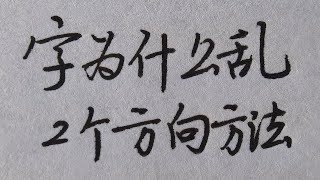 字为什么乱
2个方向方法